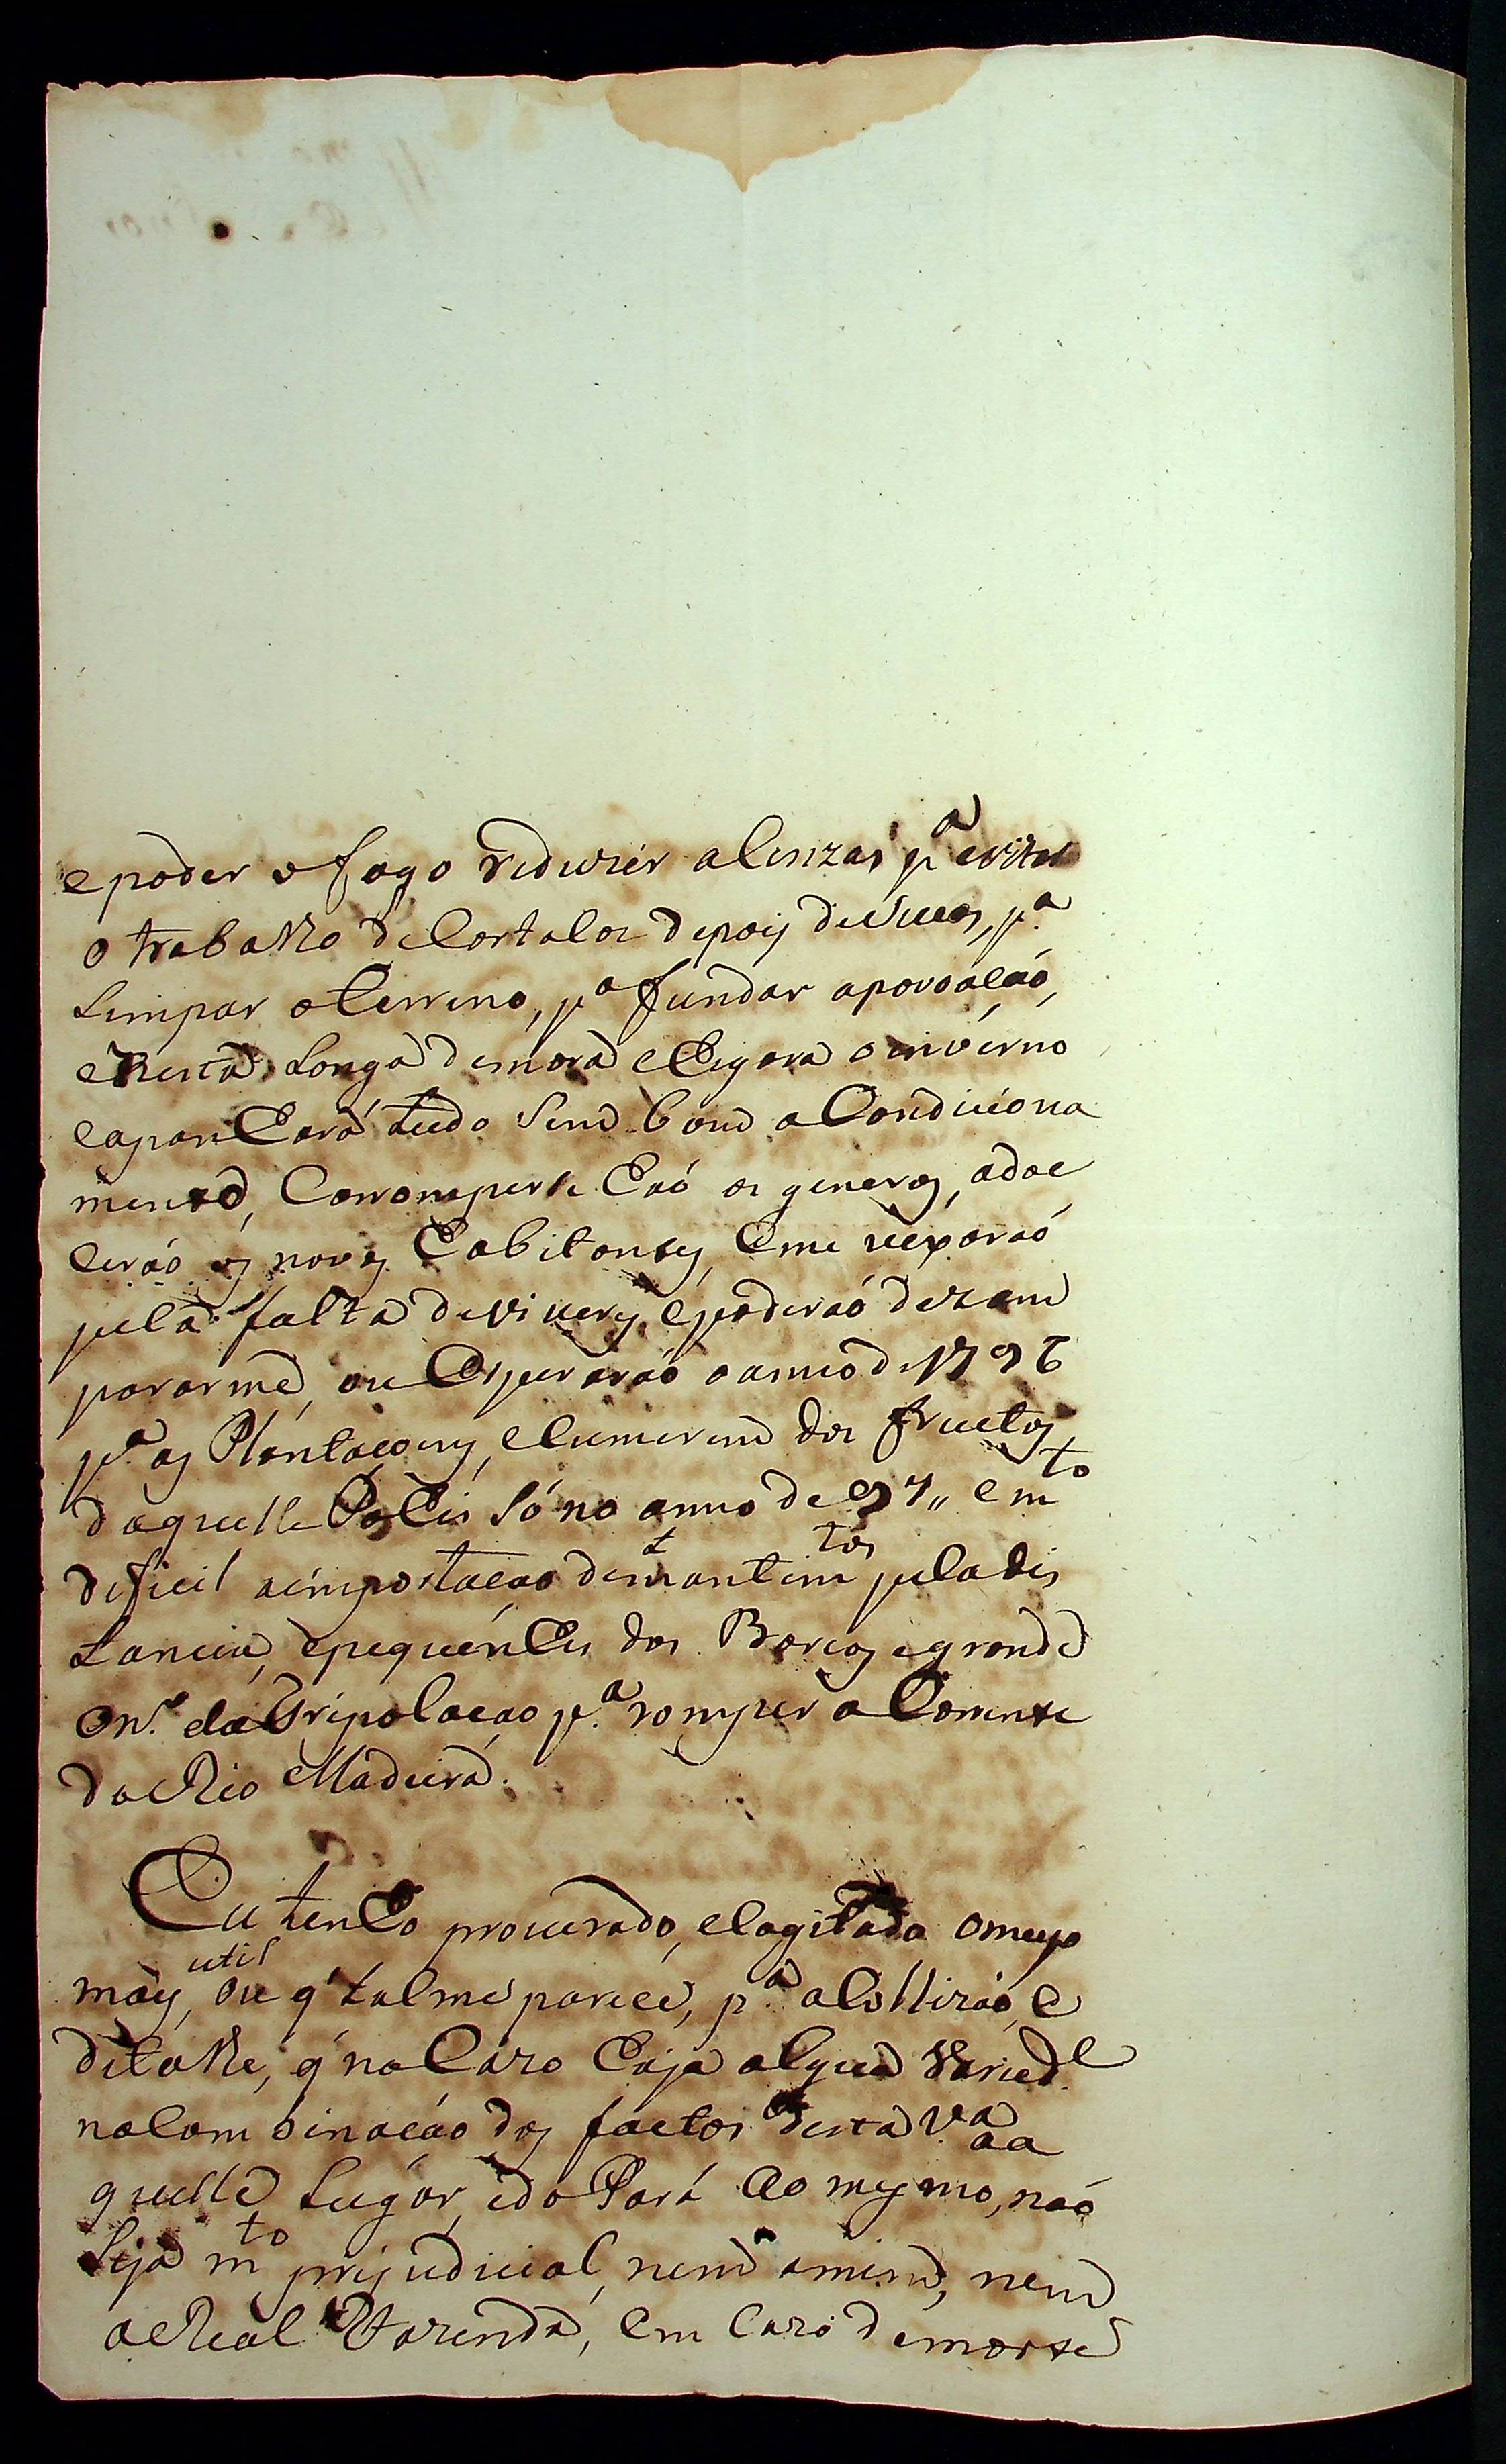 e poder o fogo reduzir a Cinzas p.ª evitar
o trabalho de Cortalos depois de Secos, p.ª
Limpar o terreno, p.ª fundar a povoação,
e nesta Longa demora Chegara o inverno
e apanhará tudo Sem bom a Condiciona
mento, Corromperse hão os generos, adoe
cerão os novos habitantes, e me vexarão
pela falta de viveres, e poderão dezam
pararme, ou esperarão o anno de 1796
p.ª as Plantaçoens, e Comerem dos fructos
daquelle Pahis só no anno de 97,, e m.to
deficil a importação de mantim.tos pela dis
tancia, e pequenhes dos Barcos e grande
N.º da Tripolação p.ª romper a Corrente
do Rio Madeira.
Eu tenho procurado, e Cogitado o meyo
mais util, ou q' tal me parece, p.ª a Collizão, e
detalhe, q' no Cazo haja algua varied.e
na Combinação dos factos desta V.ª a a
quelle Lugar, e do Pará ao mesmo, não
Seja m.to prejudicial, nem a mim, nem
a Real Fazenda, em Cazo de morte